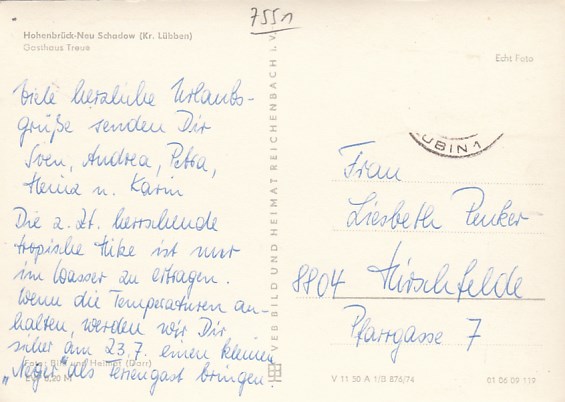 7551
Hohenbrück-Neu Schadow (Kr. Lübben)
Gasthaus Treue
Echt Foto
Viele herzliche Urlaubs-
grüße senden Dir
Sven, Andrea, Petra,
Heinz u. Karin
Die z. Zt. herrschende
tropische Hitze ist nur
im Wasser zu ertragen.
Wenn die Temperaturen an-
halten, werden wir Dir
sicher am 23.7. einen kleinen
„Neger" als Feriengast bringen.
Foto: Bild und Heimat (Darr)
0,20 M
VEB BILD UND HEIMAT REICHENBACH i. V.
UBIN 1
Frau
Liesbeth Penker
8804 Hirschfelde
Pfarrgasse 7
V 11 50 A 1/B 876/74
01 06 09 119